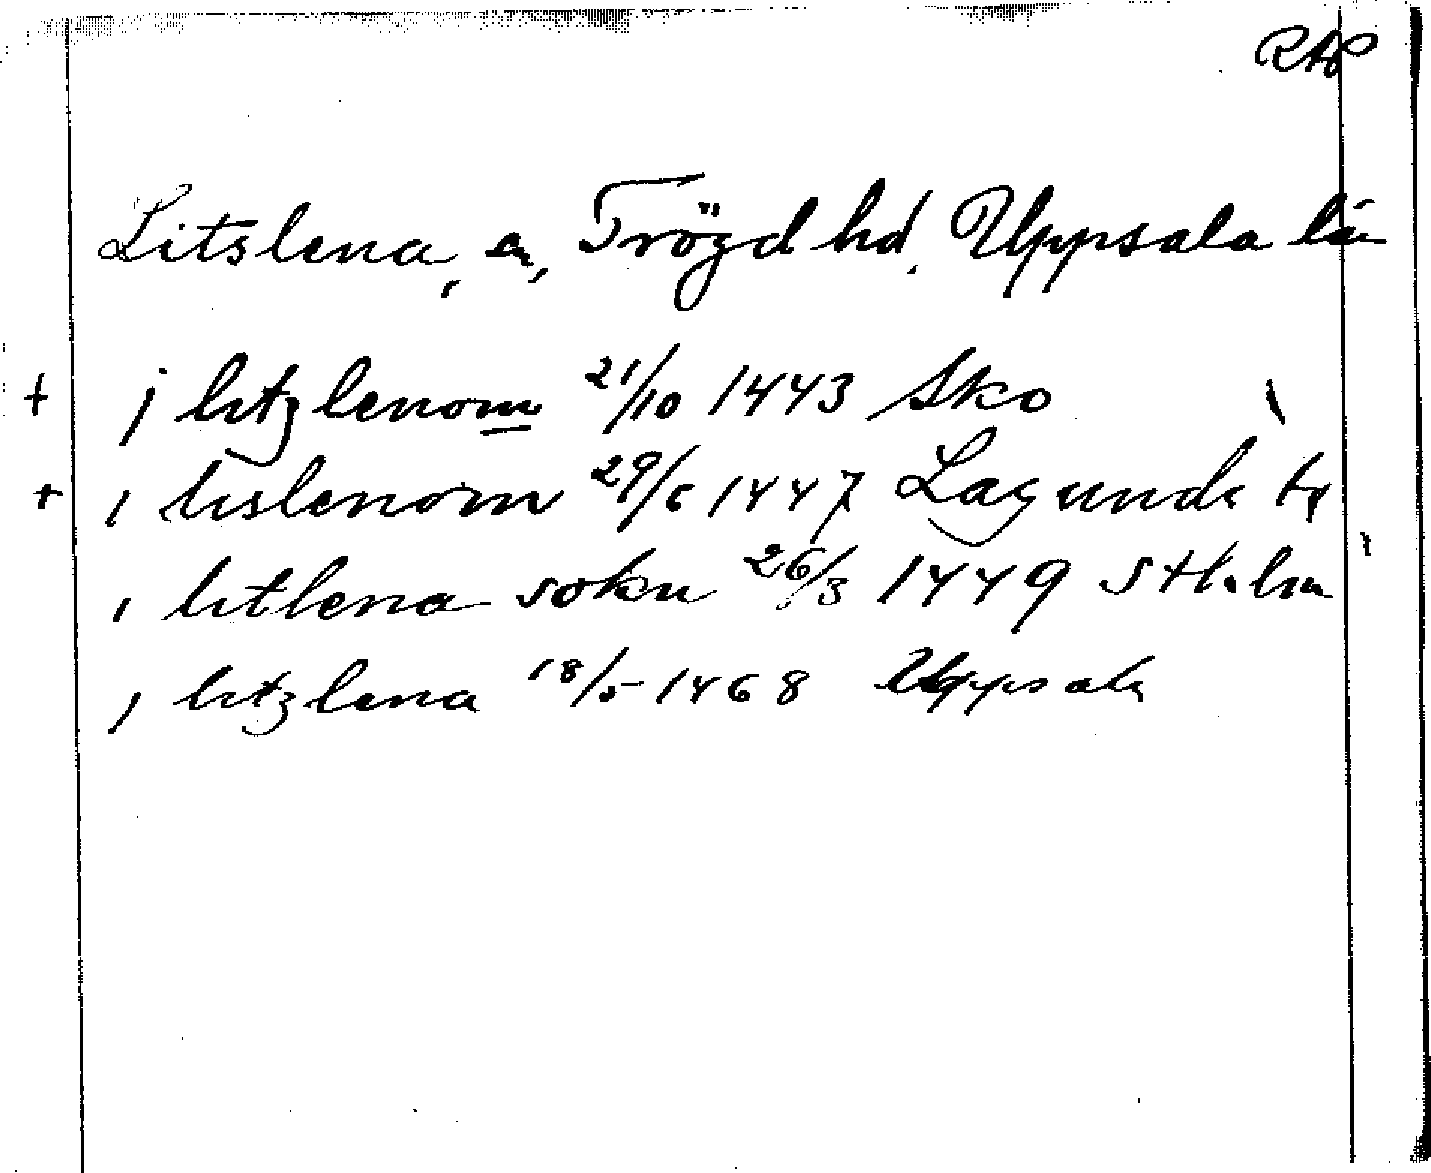 RAP
Litslena, sn, Trögd hd, Uppsala län
+ j litzlenom 21/10 1443 Sko
+ i lislenom 29/6 1447 Lagunda
i litlena sokn 26/3 1449 Sthlm
j litzlena 18/5 1468 Uppsala